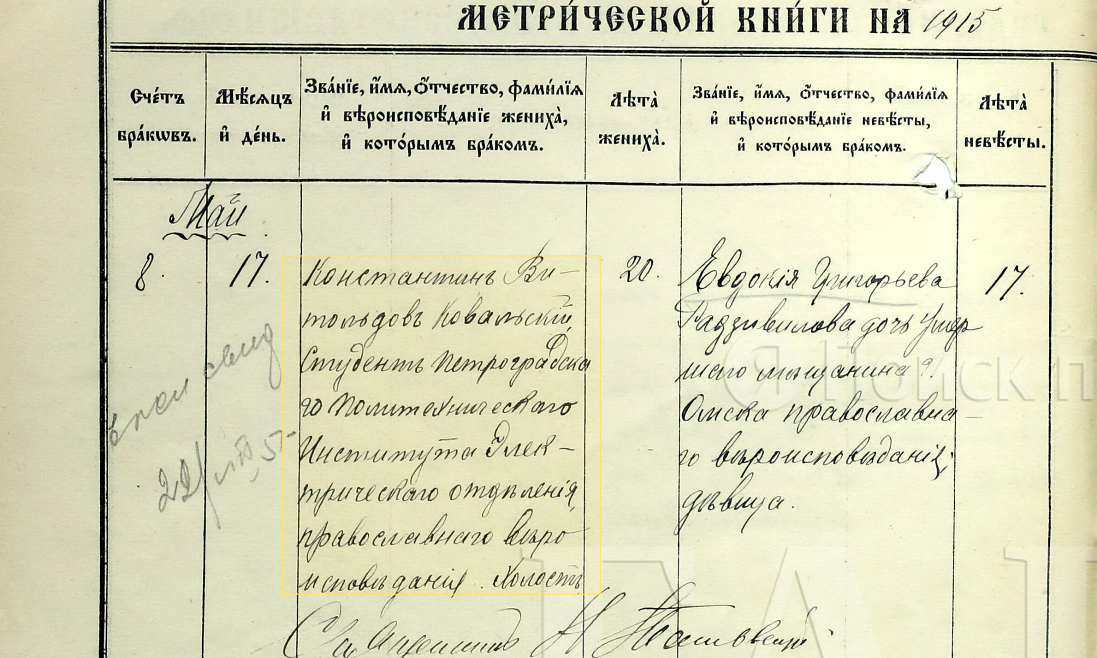 МЕТРИ́ЧЕСКОЙ КНИ́ГИ НА 1915
Сче́тъ бра́кωвъ.
Мѣ́сяцъ и҆ де́нь.
Зва́нїе, и҆́мя, ѻ҆́тчество, фами́лїя
и҆ вѣроисповѣ́данїе жениха̀,
и҆ кото́рымъ бра́комъ.
Лѣта̀ жениха̀.
Зва́нїе, и҆́мя, ѻ҆́тчество, фами́лїя
и҆ вѣроисповѣ́данїе невѣ́сты,
и҆ кото́рымъ бра́комъ.
Лѣта̀ невѣ́сты.
Май
8.
17.
Константинъ Ви-
тольдовъ Ковальскій,
Студентъ Петроградска
го Политехническаго
Института Элек-
трическаго отдѣленія,
православнаго вѣро
исповѣданія. Холостъ
20.
Евдокія Григорьева
Радзивилова дочь умер
шаго мѣщанина г.
Омска православна-
го вѣроисповѣданія,
дѣвица.
17.
22/VIII 5
Я Поиск п